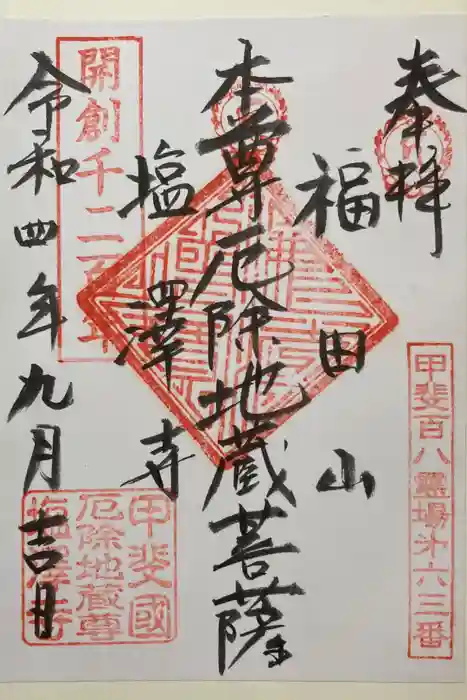 奉拝
福田山
本尊厄除地蔵菩薩
塩澤寺
令和四年九月吉日
甲斐百八霊場第六三番
開創千二百年
甲斐國
厄除地蔵尊
塩澤寺